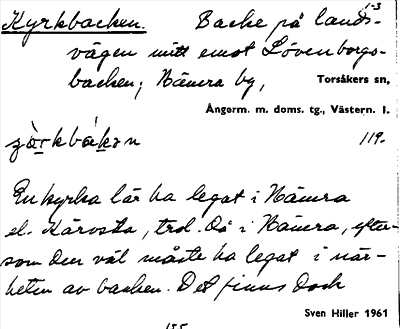 1-3
Kyrkbacken. Backe på lands-
vägen mitt emot Lövenborgs-
backen; Nämra by, Torsåkers sn,
Ångerm. m. doms. tg., Västern. l.
119.
En kyrka lär ha legat i Nämra
el. Kärvsta, trol. då i Nämra, efter-
som den väl måste ha legat i när-
heten av backen. Det finns dock
Sven Hiller 1961